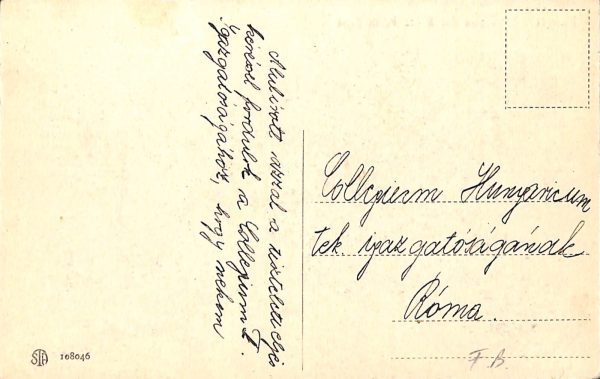 Alulirott azzal a tiszteletteljes
kéréssel fordulok a Collegium T.
Igazgatóságához, hogy nekem
Collegium Hungaricum
tek. igazgatóságának
Róma.
F. B.
STA 108046